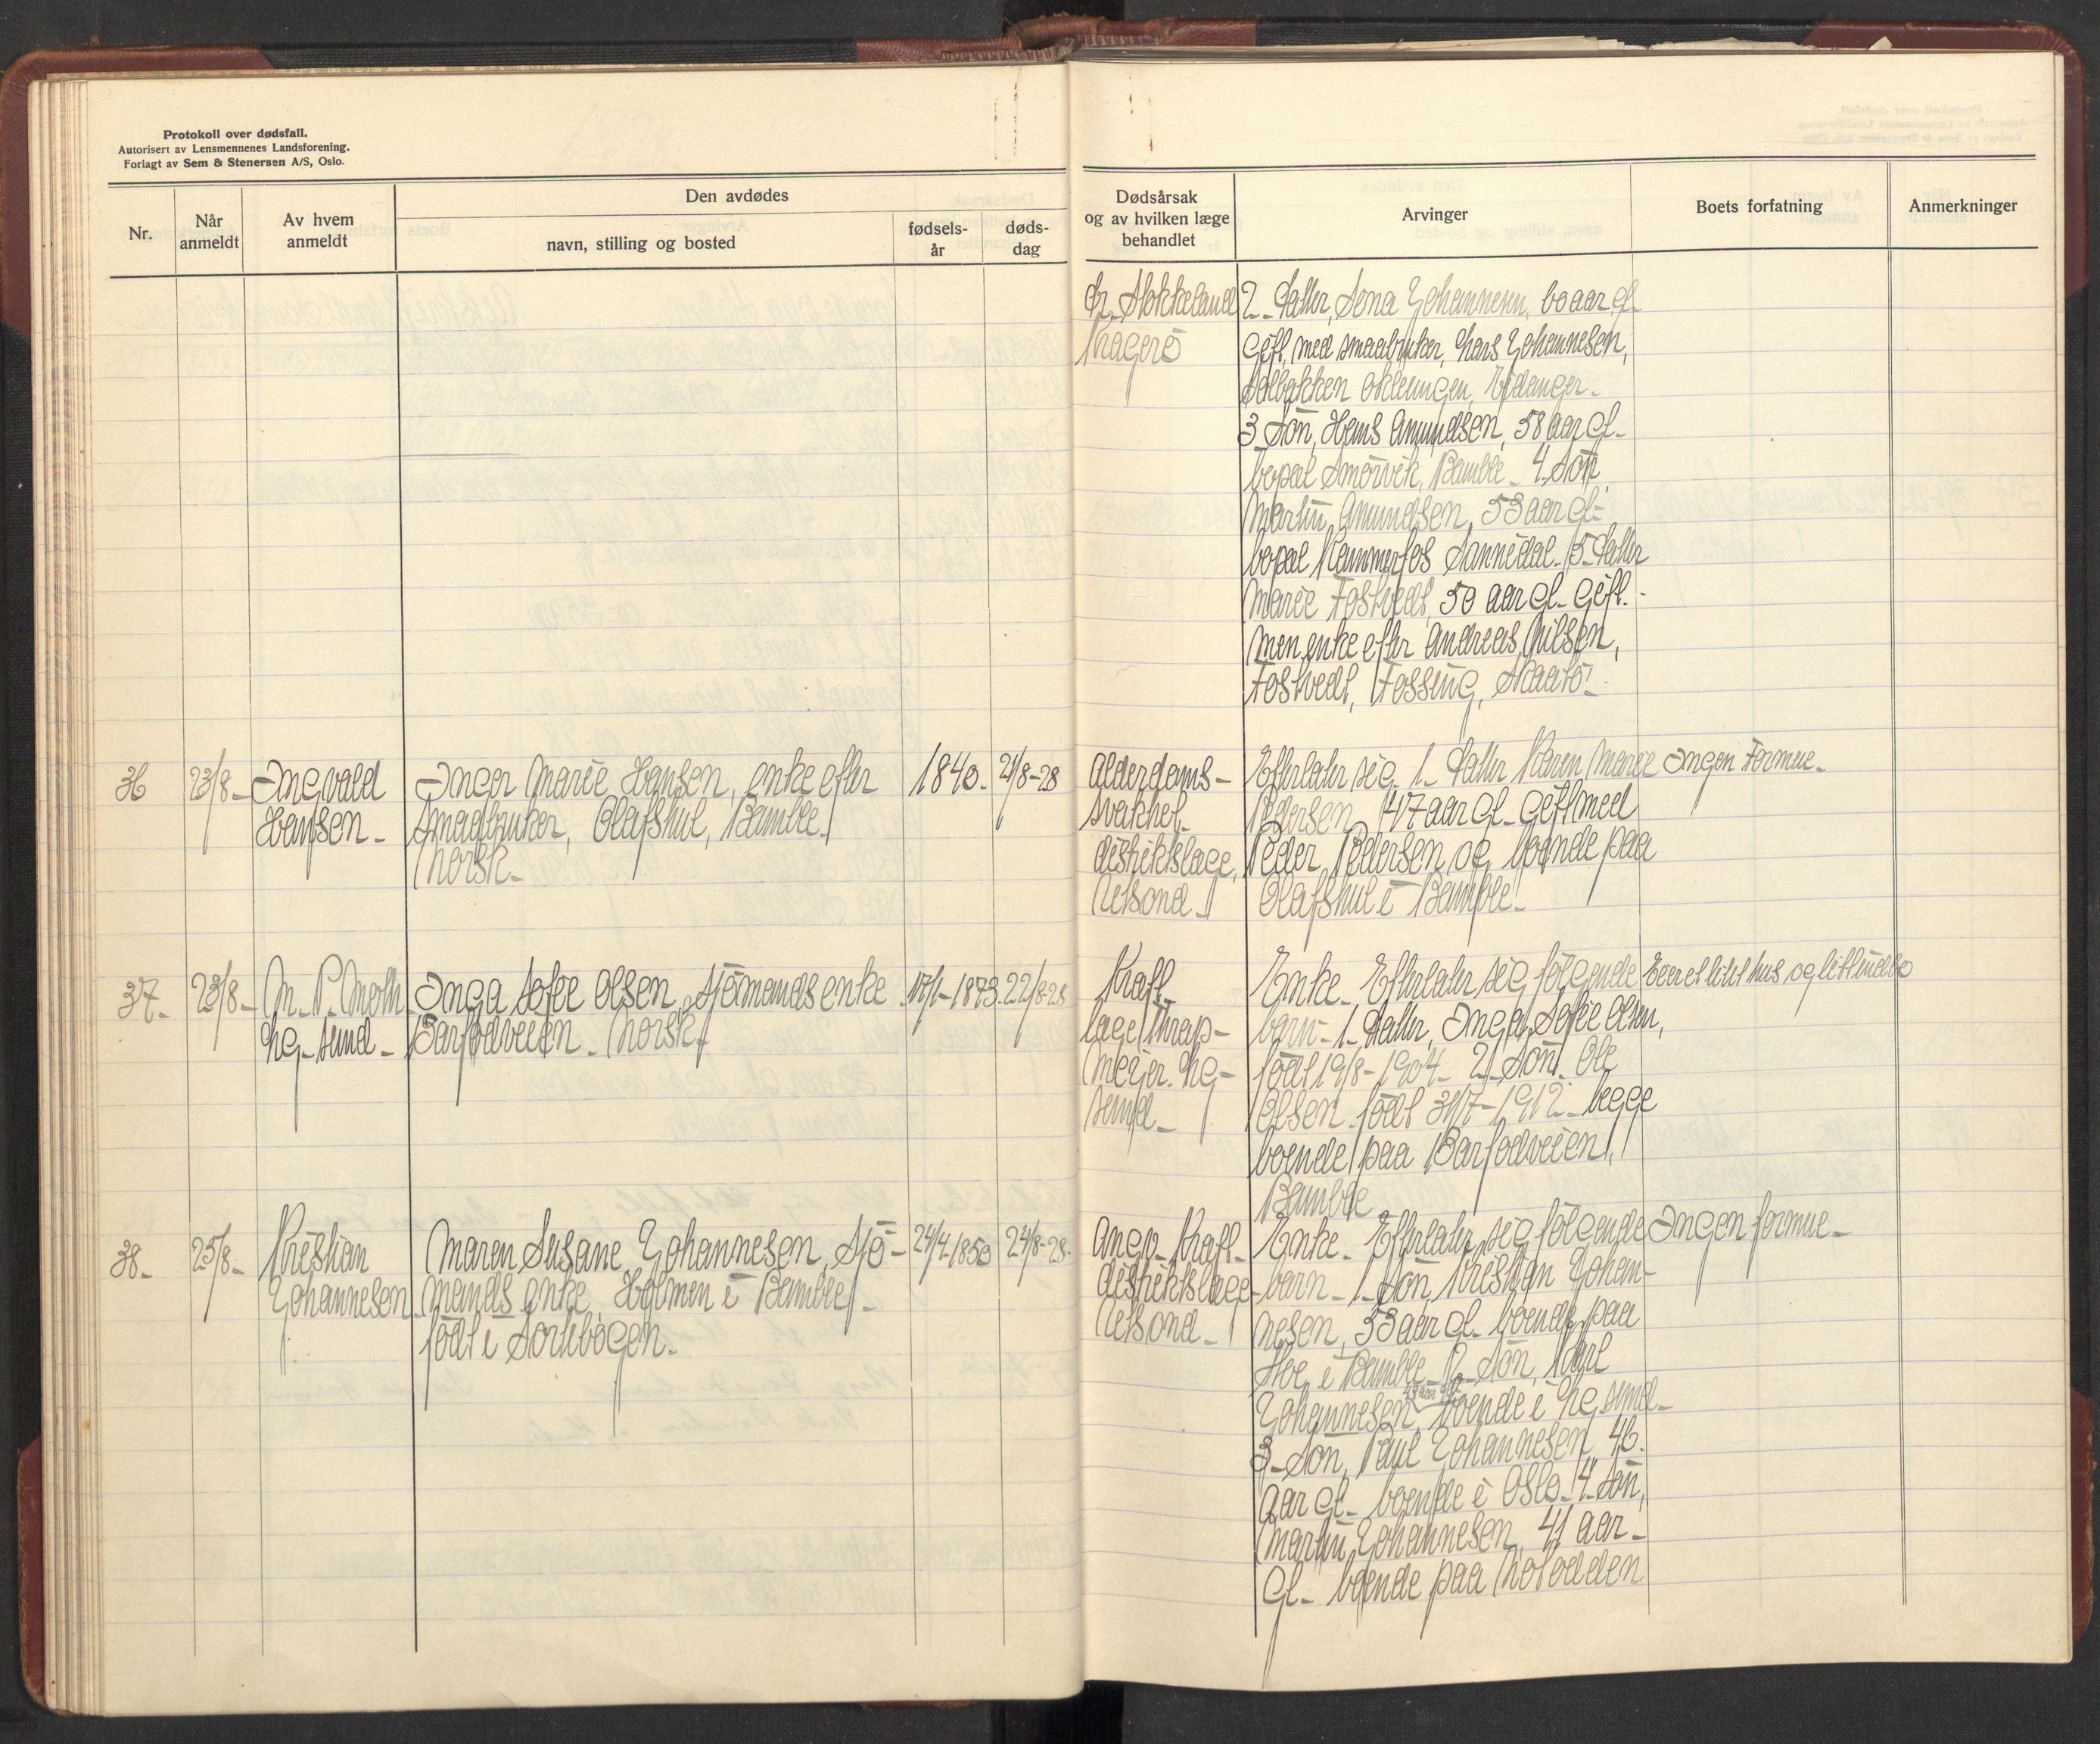 Protokoll over dødsfall.
Autorisert av Lensmennenes Landsforening.
Forlagt av Sem & Stenersen A/S, Oslo.
Nr.
Når anmeldt
Av hvem anmeldt
Den avdødes
navn, stilling og bosted
fødsels-
år
døds-
dag
Dødsårsak
og av hvilken læge
behandlet
Arvinger
Boets forfatning
Anmerkninger
dr. Stokkeland
Kragerö
2. datter, Anna Johannesen, 60 aar gl.
Gift med smaabruker, Lars Johannesen,
Solbakken Oklungen, Eidanger.
3 Sön, Hans Amundsen, 58 aar gl.
bopæl Smörvik, Bamble. 4. Sön,
Martin Amundsen, 53 aar gl.
bopæl Kammerfos Sannidal. 5. datter
Marie Fostvedt, 50 aar gl. Gift.
men enke efter Andreas Nilsen,
Fostvedt, Fossing, Skaatö.
36
23/8-
Ingvald
Hansen.
Inger Marie Hansen, enke efter
Smaabruker, Olafshul, Bamble.
Norsk.
1840.
21/8-28
Alderdoms-
svakhet.
distriktslæge,
Ulsond.
Efterlater sig 1. datter Karen Marie
Pedersen, 47 aar gl. Gift med
Peder Pedersen og boende paa
Olafshul i Bamble.
Ingen Formue.
37.
23/8-
M. P. Moth
Lg.sund.
Inga Sofie Olsen, Sjömands enke
Barfodveien. Norsk.
17/1-1873.
22/8-28
Kræft.
læge Thrap-
Meyer. Lg-
sund.
Enke. Efterlater sig følgende
barn. 1. datter, Inga Sofie Olsen,
født 19/8-1904. 2. Sön. Ole
Olsen. født 31/7-1912. begge
boende paa Barfodveien,
Bamble.
Eier et litet hus og litt indbo
38.
25/8-
Kristian
Johannesen
Maren Susane Johannesen, Sjö-
mands enke, Holmen i Bamble.
født i Porkbögen.
24/4-1850
24/8-28.
Angv. Kræft.
distriktslæge
Ulsond.
Enke. Efterlater sig følgende
barn. 1. Sön, Kristian Johan-
nesen, 53 aar gl. boende paa
Stoe i Bamble. 2. Sön, Karl
Johannesen, 49 aar gl. boende i Lg.sund.
3. Sön, Paul Johannesen, 46.
aar gl. boende i Oslo. 4. Sön,
Martin Johannesen, 41 aar.
gl. boende paa Notodden
Ingen formue.